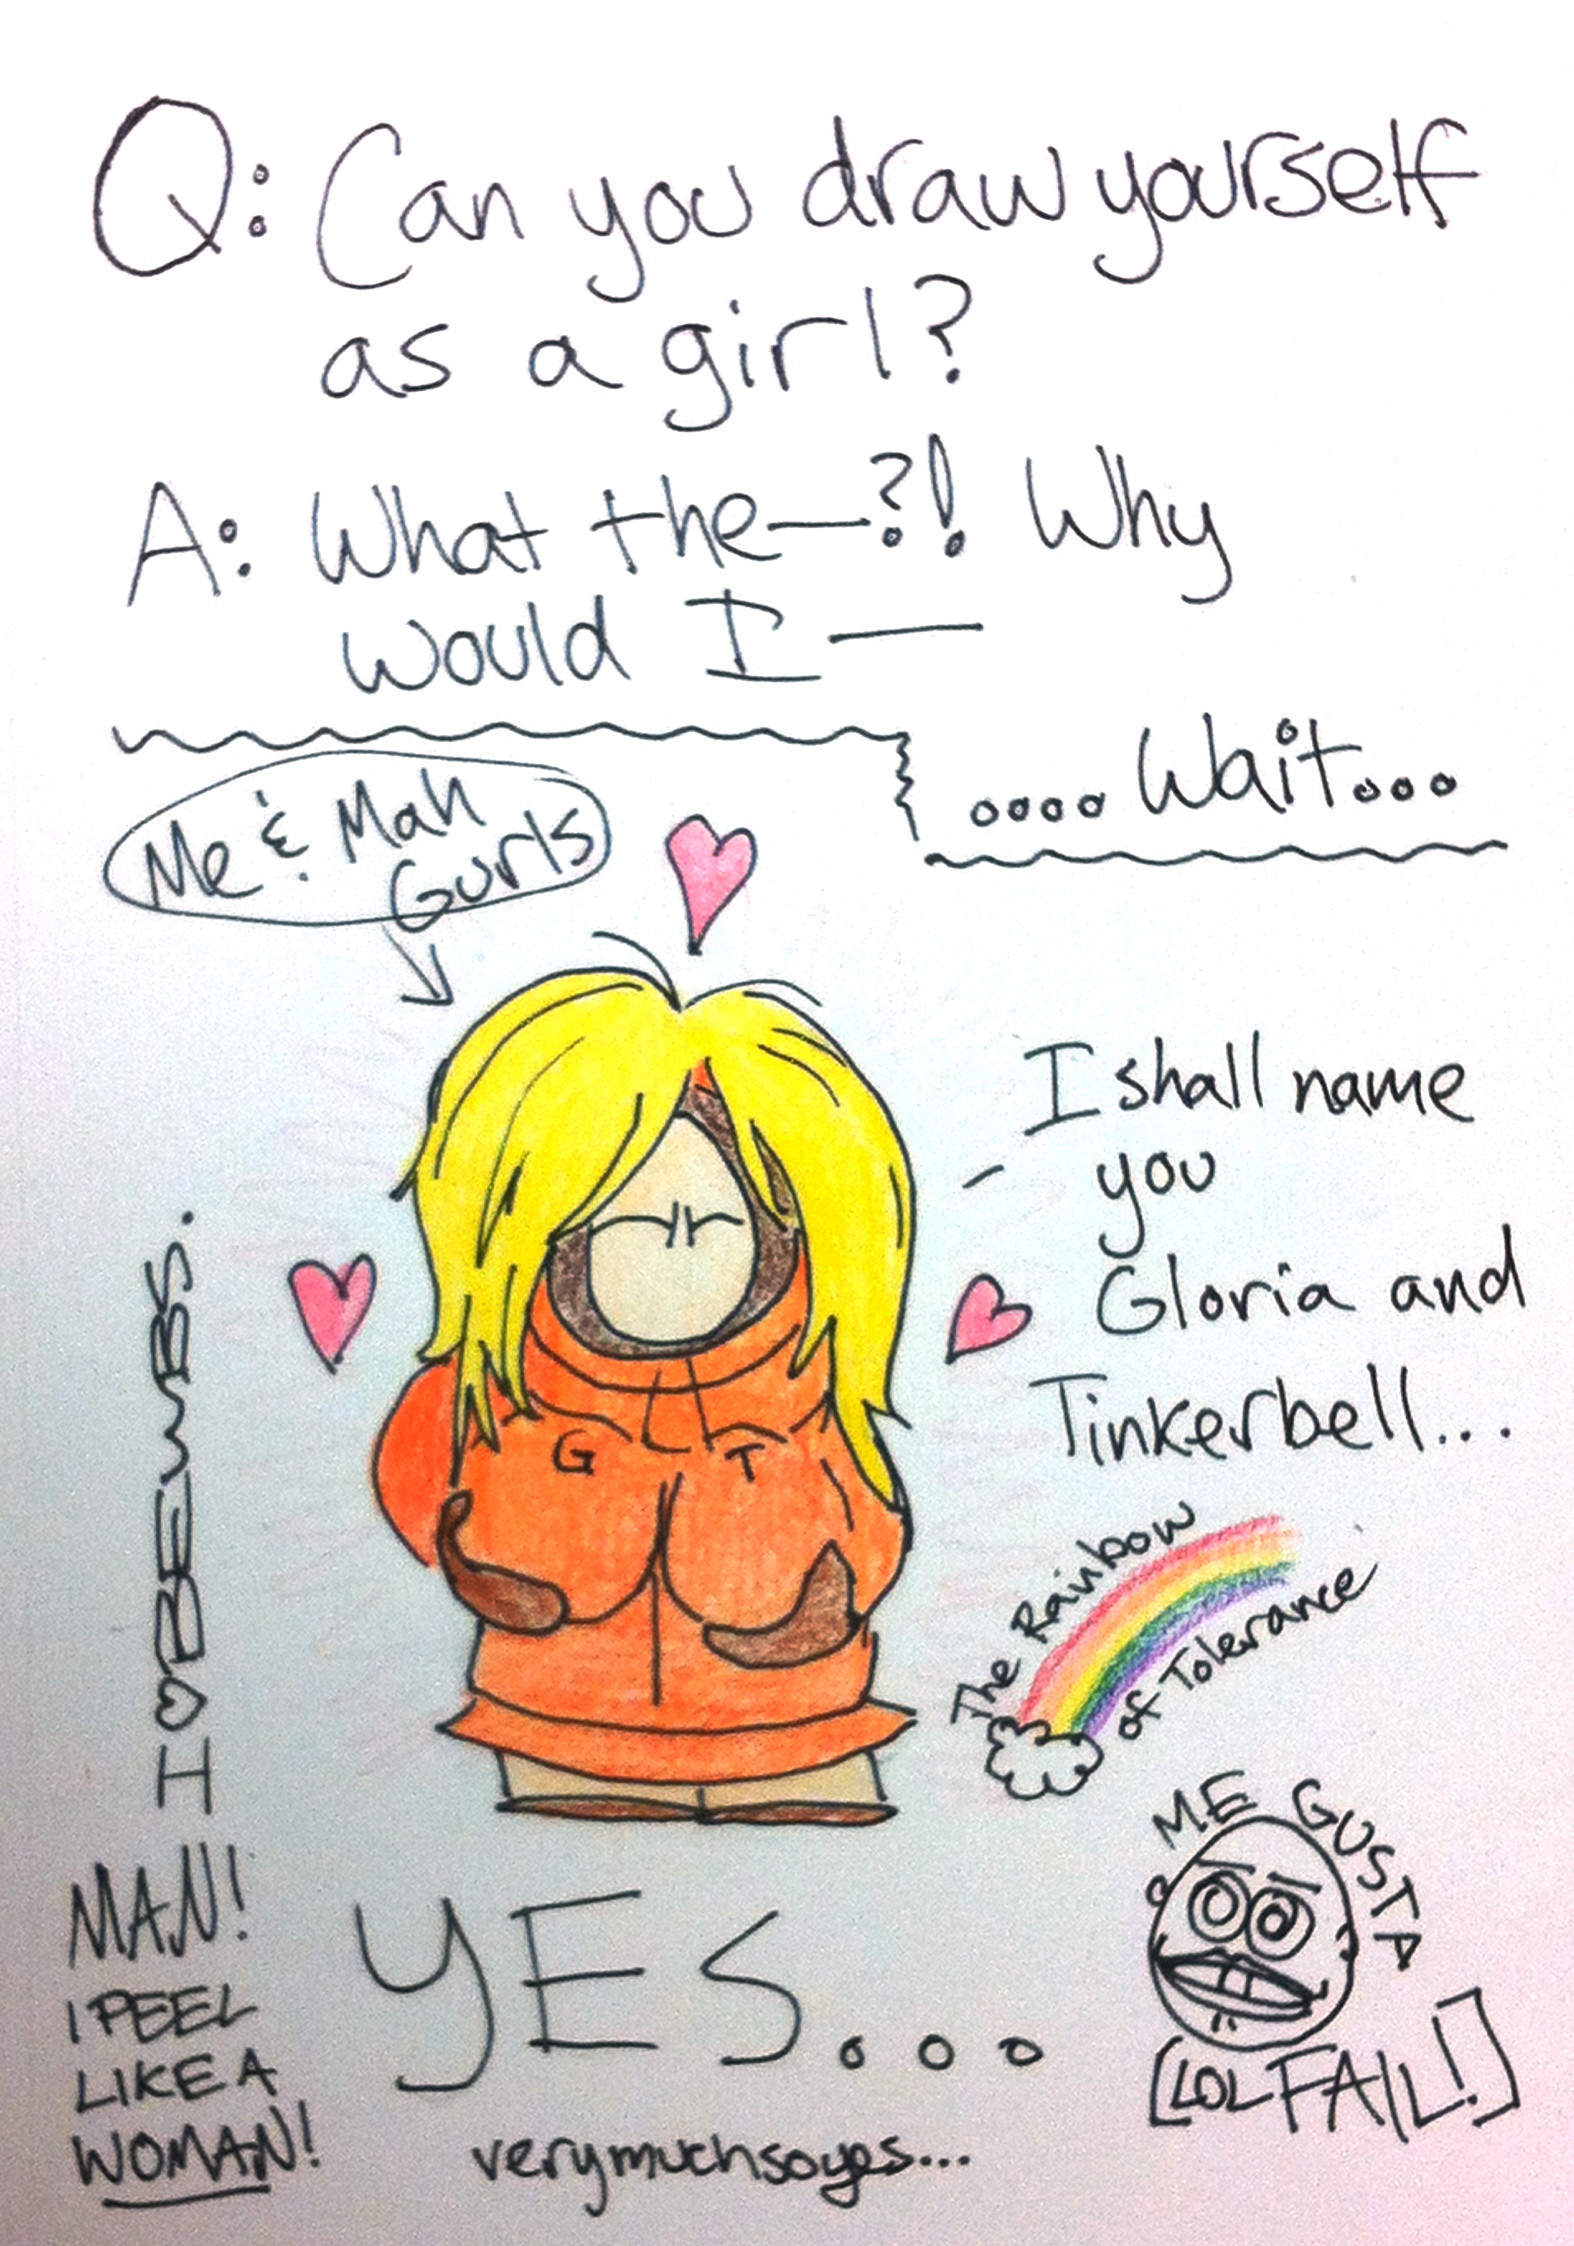 Q: Can you draw yourself
as a girl?
A: What the—?! Why
would I—
....Wait...
Me & Mah
Gurls
I shall name
you
Gloria and
Tinkerbell...
G T
H♡BEWBS.
The Rainbow
of Tolerance
ME GUSTA
[LOL FAIL!]
MAN!
I PEEL
LIKE A
WOMAN!
YES...
verymuchsoyes...